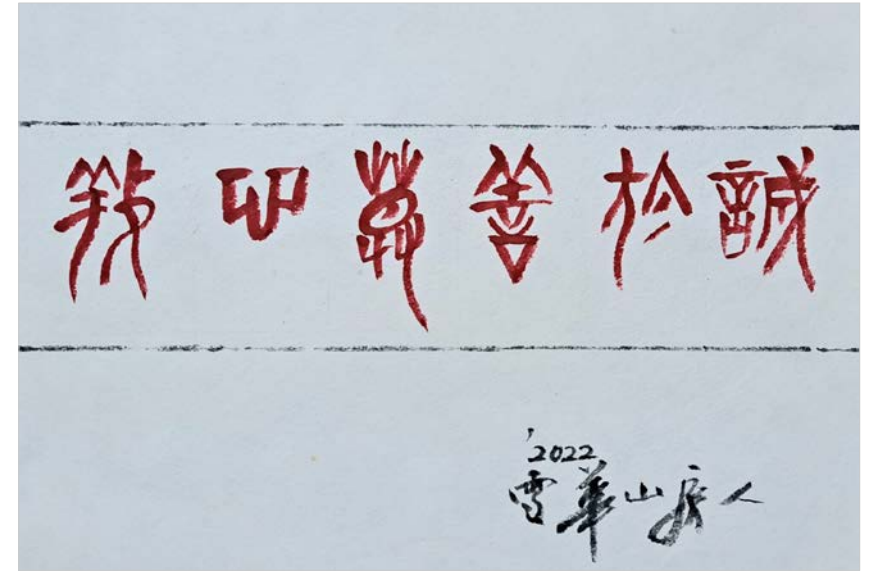 養心莫善於誠
'2022
雪華山房人